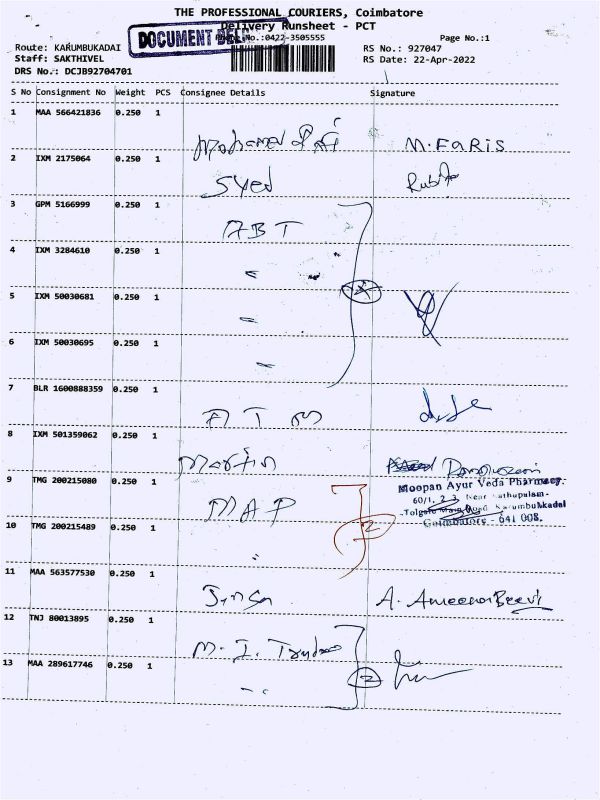 THE PROFESSIONAL COURIERS, Coimbatore
Delivery Runsheet - PCT
DOCUMENT
Phone No.:0422-3505555
Page No.:1
Route: KARUMBUKADAI
RS No.: 927047
Staff: SAKTHIVEL
RS Date: 22-Apr-2022
DRS No.: DCJB92704701
S No Consignment No Weight PCS Consignee Details Signature
1 MAA 566421836 0.250 1
Mohamed M.FaRis
2 IXM 2175064 0.250 1
Syed
3 GPM 5166999 0.250 1
ABT
4 IXM 3284610 0.250 1
5 IXM 50030681 0.250 1
6 IXM 50030695 0.250 1
7 BLR 1600888359 0.250 1
8 IXM 501359062 0.250 1
Martin
9 TMG 200215080 0.250 1
MAP
Moopan Ayur Veda Pharmacy.
60/1, 2 3, Near Sathupalam-
Main Road Karumbukkadai
Coimbatore - 641 008.
2
10 TMG 200215489 0.250 1
11 MAA 563577530 0.250 1
A. AmeenaBeevi
12 TNJ 80013895 0.250 1
M. I. Traders
13 MAA 289617746 0.250 1
2